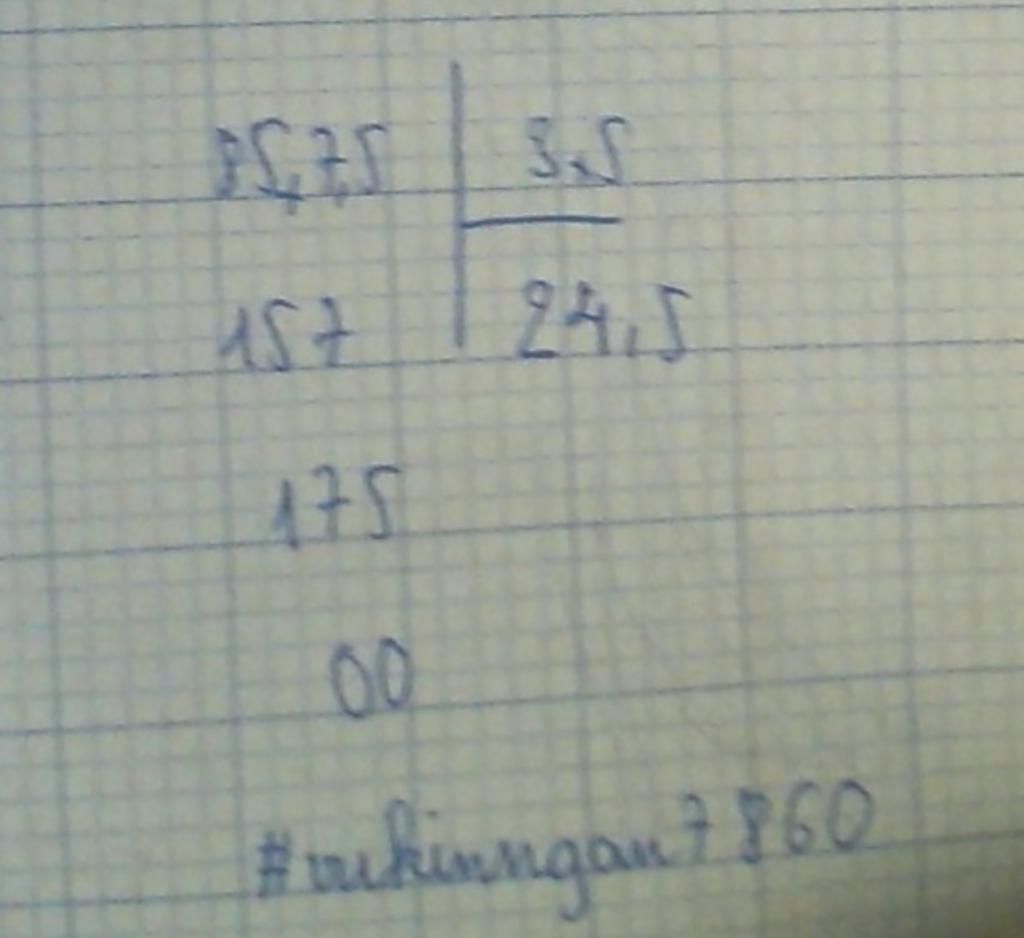 85,7,5 3,5
157 24,5
175
00
#vukimngan7860